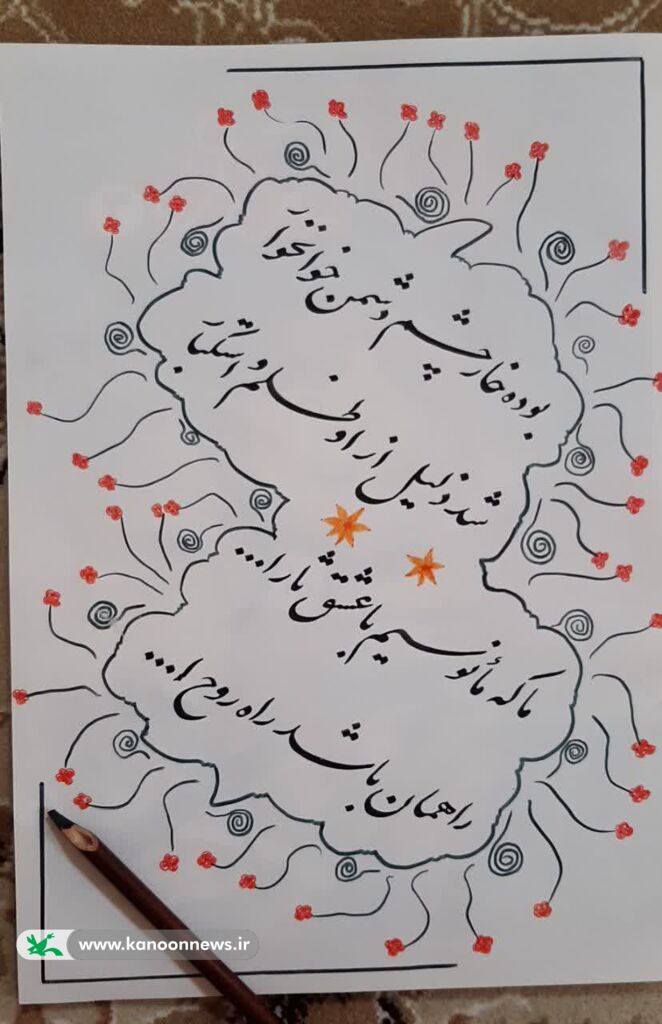 بوده خار چشم دشمن خوانخوار
شد ذلیل از او ظلم و استکبار
ما که مأنوسیم با عشق یارا...
راهمان باشد راه روح ا...
www.kanoonnews.ir